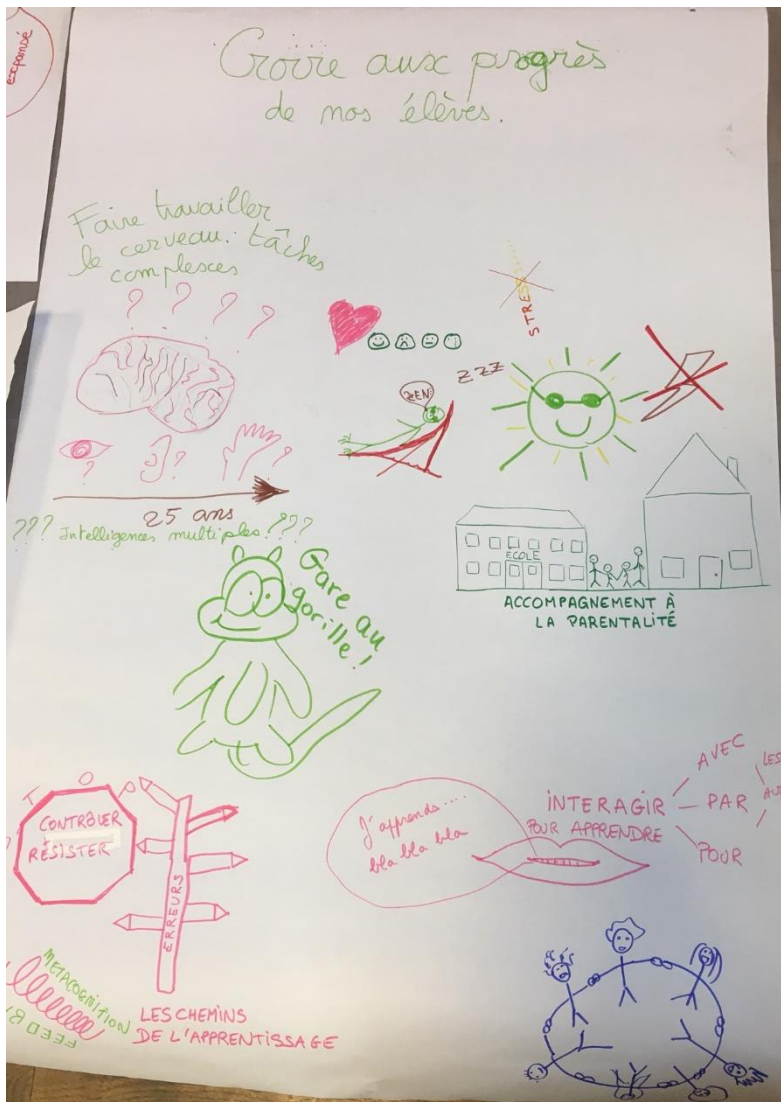 expansé
Croire aux progrès
de nos élèves.
Faire travailler
le cerveau : tâches
complexes
? ? ? ?
STRESS
ZEN
ZZZ
? ? ?
25 ans
??? Intelligences multiples ???
Gare au
gorille !
ECOLE
ACCOMPAGNEMENT À
LA PARENTALITÉ
STOP
CONTRÔLER
RÉSISTER
ERREURS
METACOGNITION
FEED B
LES CHEMINS
DE L'APPRENTISSAGE
J'apprends....
bla bla bla
INTERAGIR
POUR APPRENDRE
AVEC
PAR
POUR
LES
AU